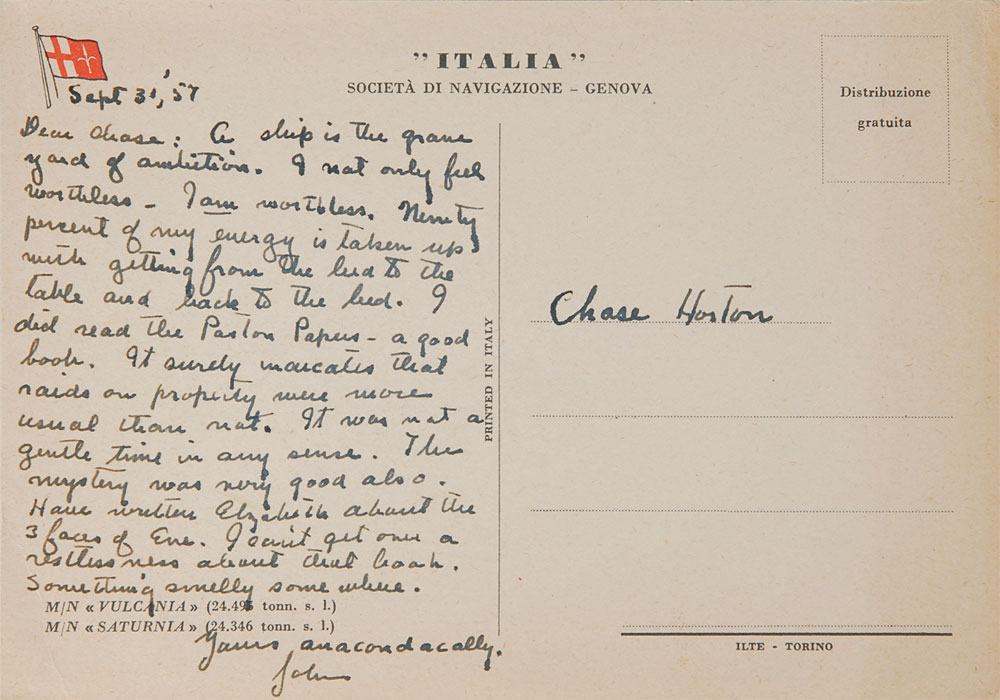 "ITALIA"
SOCIETÀ DI NAVIGAZIONE – GENOVA
Distribuzione
gratuita
Sept 31, '57
Dear Chase: A ship is the grave
yard of ambition. I not only feel
worthless – I am worthless. Ninety
percent of my energy is taken up
with getting from the bed to the
table and back to the bed. I
did read the Paston Papers – a good
book. It surely that
raids on property were more
usual than not. It was not a
gentle time in any sense. The
mystery was very good also.
Have written Elizabeth about the
3 faces of Eve. I can't get over a
restlessness about that book.
Something smelly some where.
M/N « VULCANIA » (24.495 tonn. s. l.)
M/N « SATURNIA » (24.346 tonn. s. l.)
Yours anacondacally.
John
PRINTED IN ITALY
Chase Horton
ILTE - TORINO